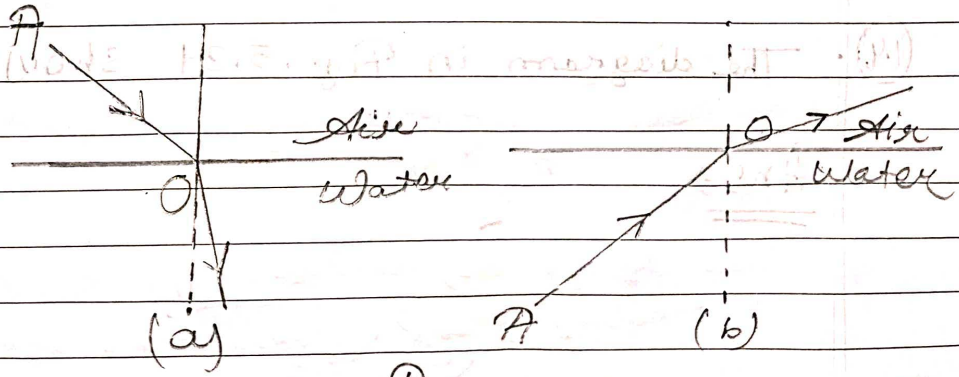 A
Air
Water
O
(a)
O Air
Water
A
(b)